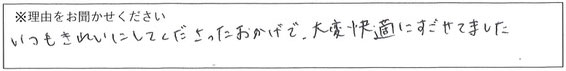 ※理由をお聞かせください
いつもきれいにしてくださったおかげで、大変快適にすごせてました